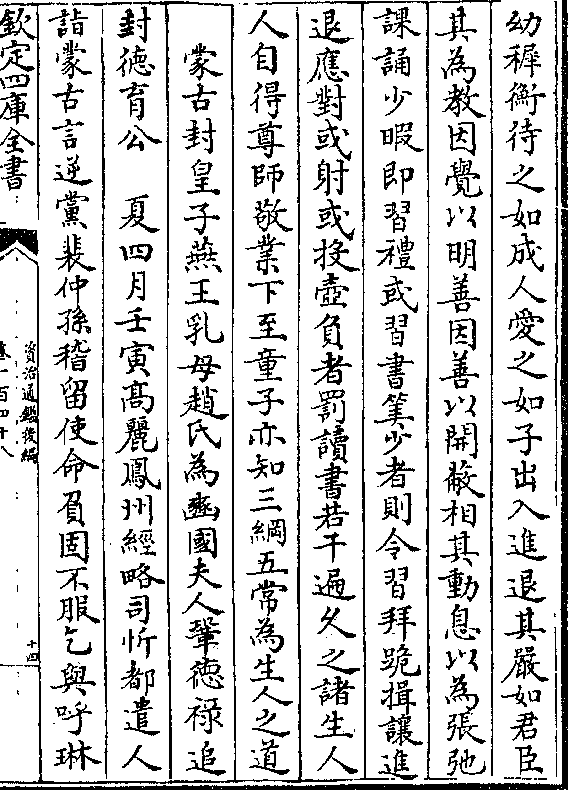 幼穉衡待之如成人愛之如子出入進退其嚴如君臣
其為教因覺以明善因善以開蔽相其動息以為張弛
課誦少暇即習禮或習書算少者則令習拜跪揖讓進
退應對或射或投壺負者罰讀書若干遍久之諸生人
人自得尊師敬業下至童子亦知三綱五常為生人之道
蒙古封皇子燕王乳母趙氏為豳國夫人鞏德祿追
封德育公　夏四月壬寅高麗鳳州經略司忻都遣人
詣蒙古言逆黨裴仲孫稽留使命負固不服乞與呼琳
欽定四庫全書
資治通鑑後編
卷一百四十八
十四